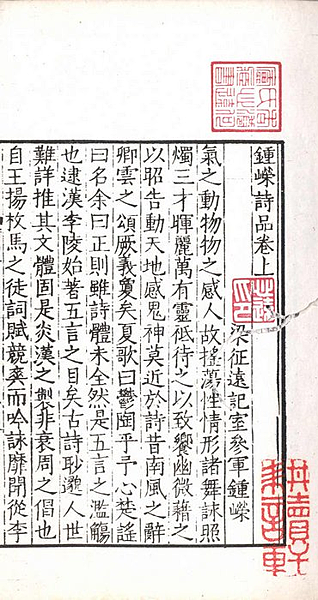 鍾嶸詩品卷上
梁征遠記室參軍鍾嶸
氣之動物物之感人故搖蕩性情形諸舞詠照
燭三才暉麗萬有靈祗待之以致饗幽微藉之
以昭告動天地感鬼神莫近於詩昔南風之辭
卿雲之頌厥義敻矣夏歌曰鬱陶乎予心楚謠
曰名余曰正則雖詩體未全然是五言之濫觴
也逮漢李陵始著五言之目矣古詩眇邈人世
難詳推其文體固是炎漢之製非衰周之倡也
自王揚枚馬之徒詞賦競爽而吟詠靡聞從李